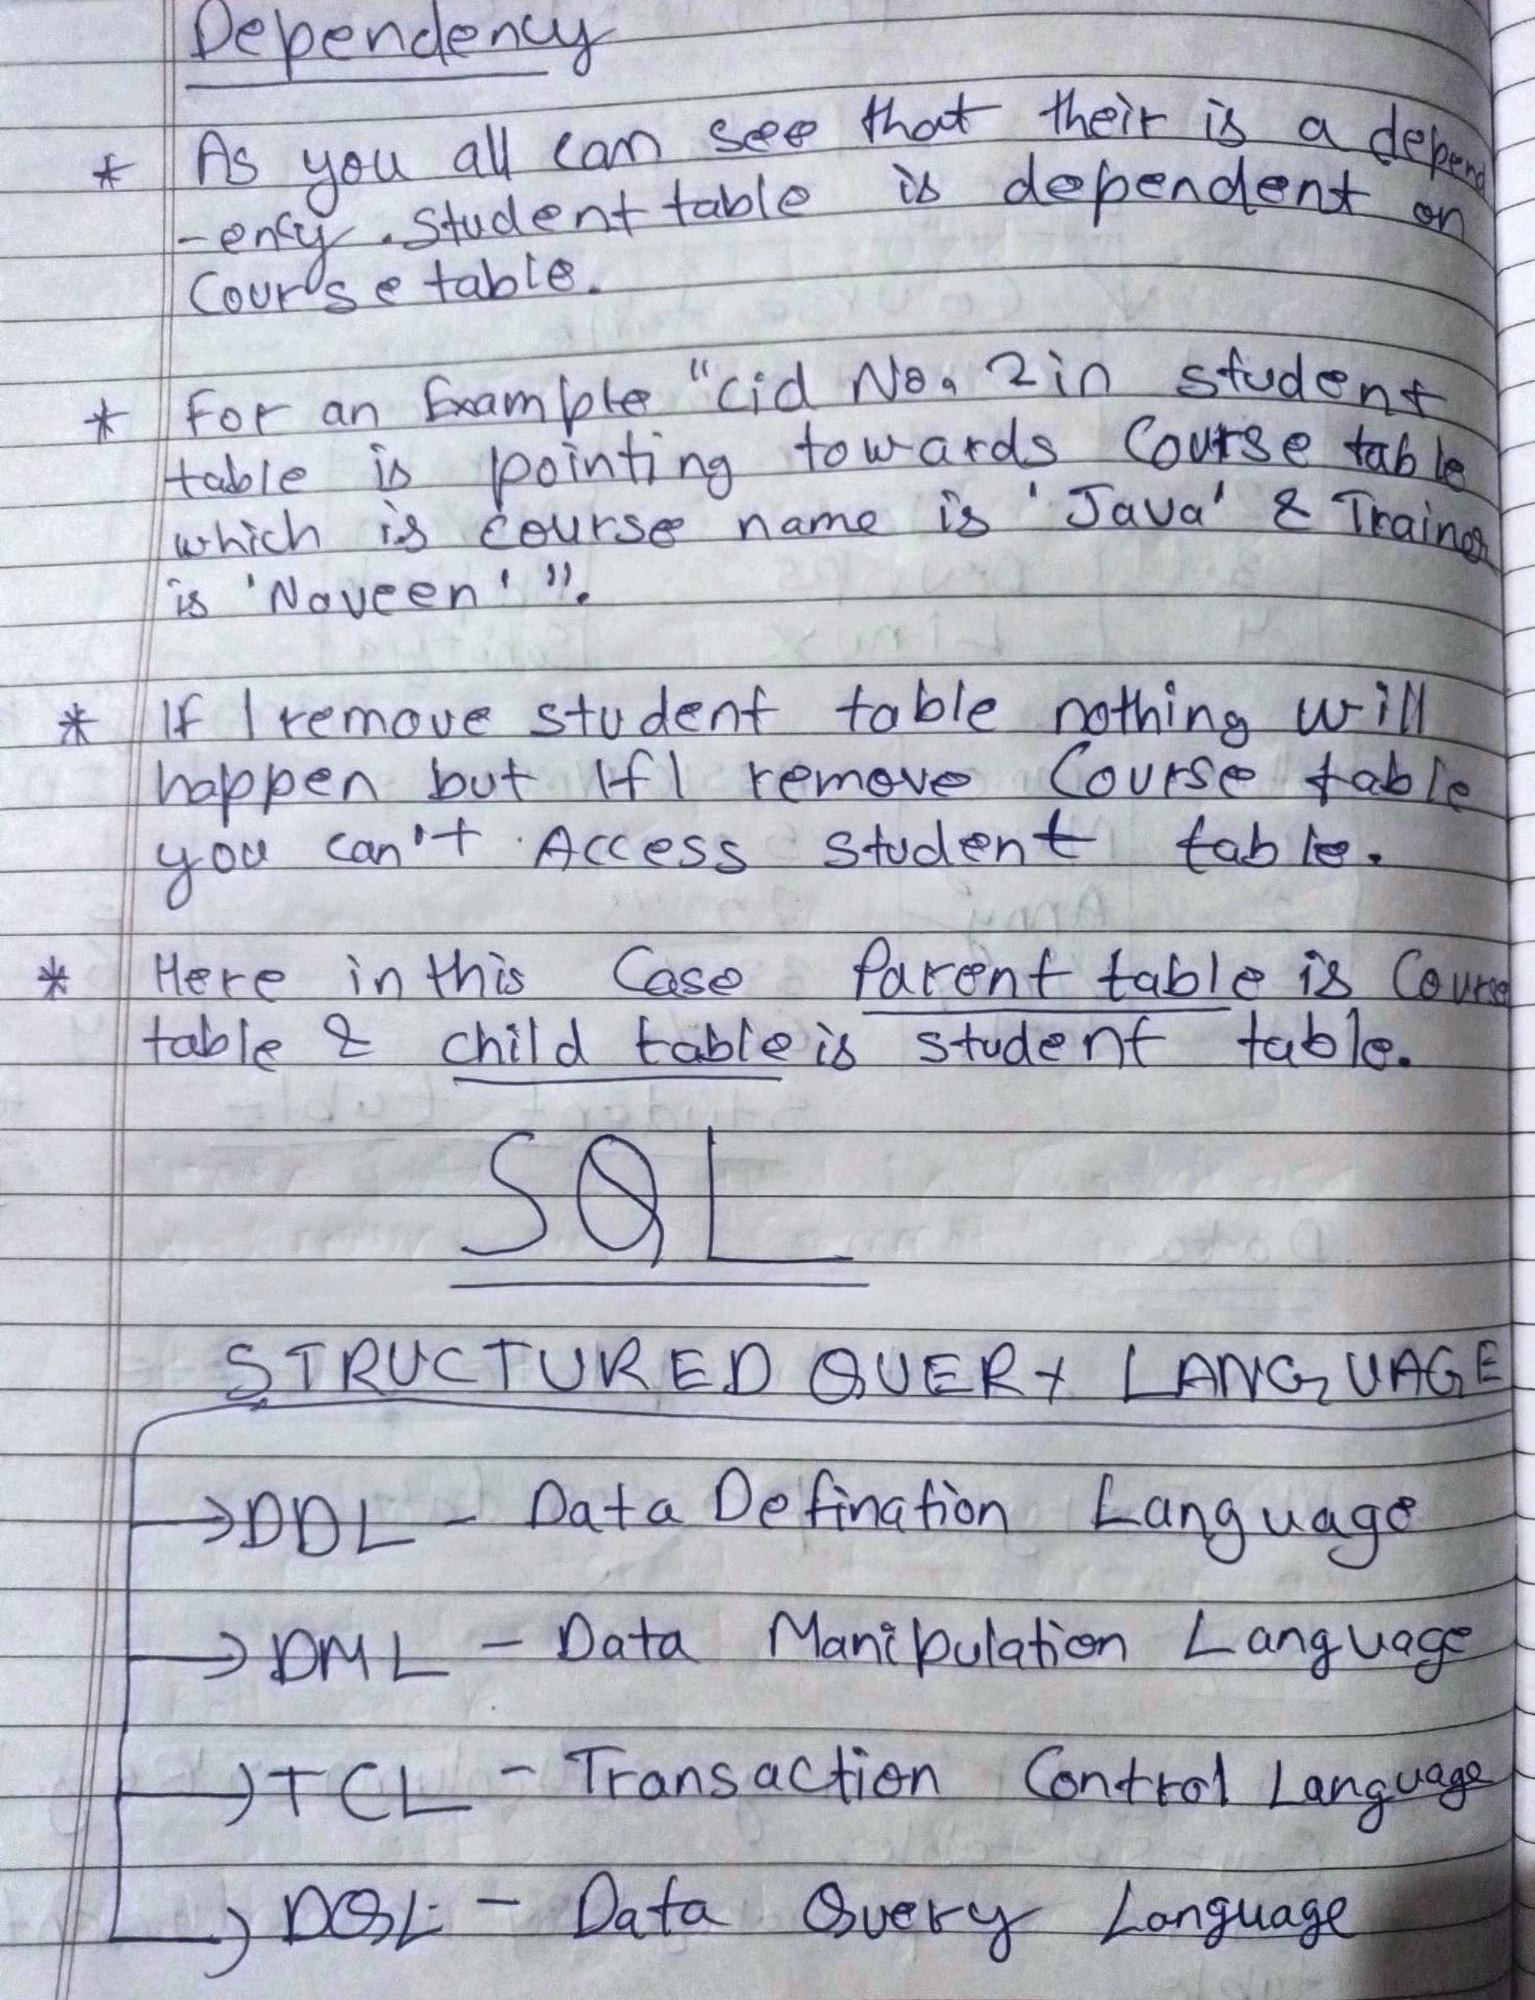 Dependency
* As you all can see that their is a depend
-ency. Student table is dependent on
Course table.
* For an Example "Cid No. 2 in student
table is pointing towards Course table
which is course name is 'Java' & Trainer
is 'Naveen' ".
* If I remove student table nothing will
happen but If I remove Course table
you can't Access student table.
* Here in this Case Parent table is Course
table & child table is student table.
SQL
STRUCTURED QUERY LANGUAGE
→ DDL - Data Defination Language
→ DML - Data Manipulation Language
→ TCL - Transaction Control Language
→ DQL - Data Query Language